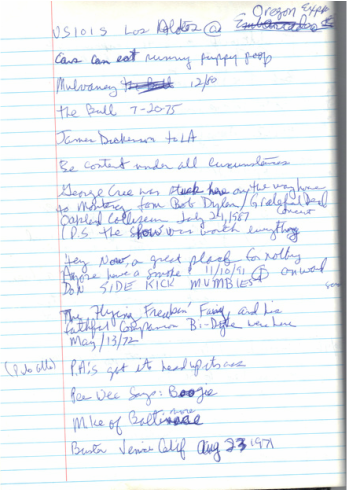 US101S Los Altos @ Oregon Expy
Cars can eat runny puppy poop
Mulvaney 12/80
the Bull 7-20-75
James Dickerson to LA
Be content under all circumstances
George Cree was stuck here on the way home
to Monterey from Bob Dylan/Grateful Dead
Oakland Coliseum July 24, 1987 concert
P.S. the show was worth everything
Hey Now, a great place for nothing
Anyone have a smoke 11/10/91 onward
DON SIDE KICK MUMBLES
The Flying Freakin' Fairy and his
faithful Companion Bi-Dyke was here
May/13/72
(Palo Alto) P.A.'s got its head up its ass
Pee Wee Says: Boogie
Mike of Baltimore
Buster Venice Calif Aug 23 1971